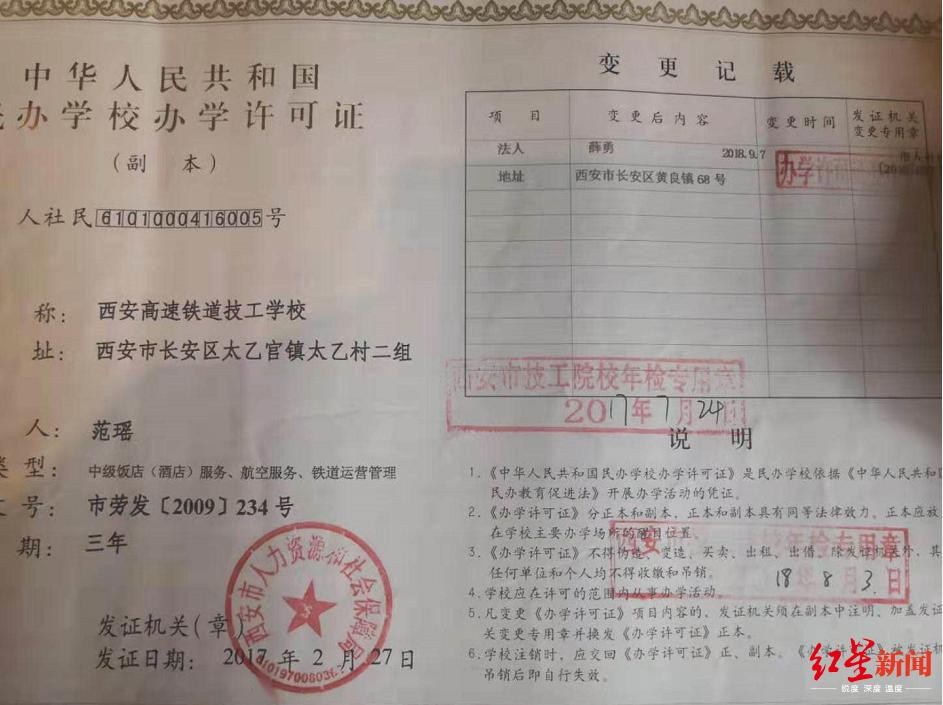 中华人民共和国
办学校办学许可证
（副 本）
人社民6101000416005号
称： 西安高速铁道技工学校
址： 西安市长安区太乙宫镇太乙村二组
人： 范瑶
类型： 中级饭店（酒店）服务、航空服务、铁道运营管理
号： 市劳发〔2009〕234号
期： 三年
发证机关（章）
发证日期： 2017年2月27日
西安市人力资源和社会保障局
变更记载
项 目 变更后内容 变更时间 发证机关变更专用章
法人 薛勇 2018.9.7
地址 西安市长安区黄良镇68号
办学许可
西安市技工院校年检专用章
2017年7月24日
说 明
1.《中华人民共和国民办学校办学许可证》是民办学校依据《中华人民共和国
民办教育促进法》开展办学活动的凭证。
2.《办学许可证》分正本和副本，正本和副本具有同等法律效力。正本应放
在学校主要办学场所的醒目位置。
3.《办学许可证》不得伪造、变造、买卖、出租、出借。除发证机关外，其
任何单位和个人均不得收缴和吊销。
4.学校应在许可的范围内从事办学活动。
5.凡变更《办学许可证》项目内容的，发证机关须在副本中注明，加盖发证
关变更专用章并换发《办学许可证》正本。
6.学校注销时，应交回《办学许可证》正、副本。《办学许可证》被发证机
吊销后即自行失效。
西安 年检专用章
18年8月3日
红星新闻
锐度 深度 温度